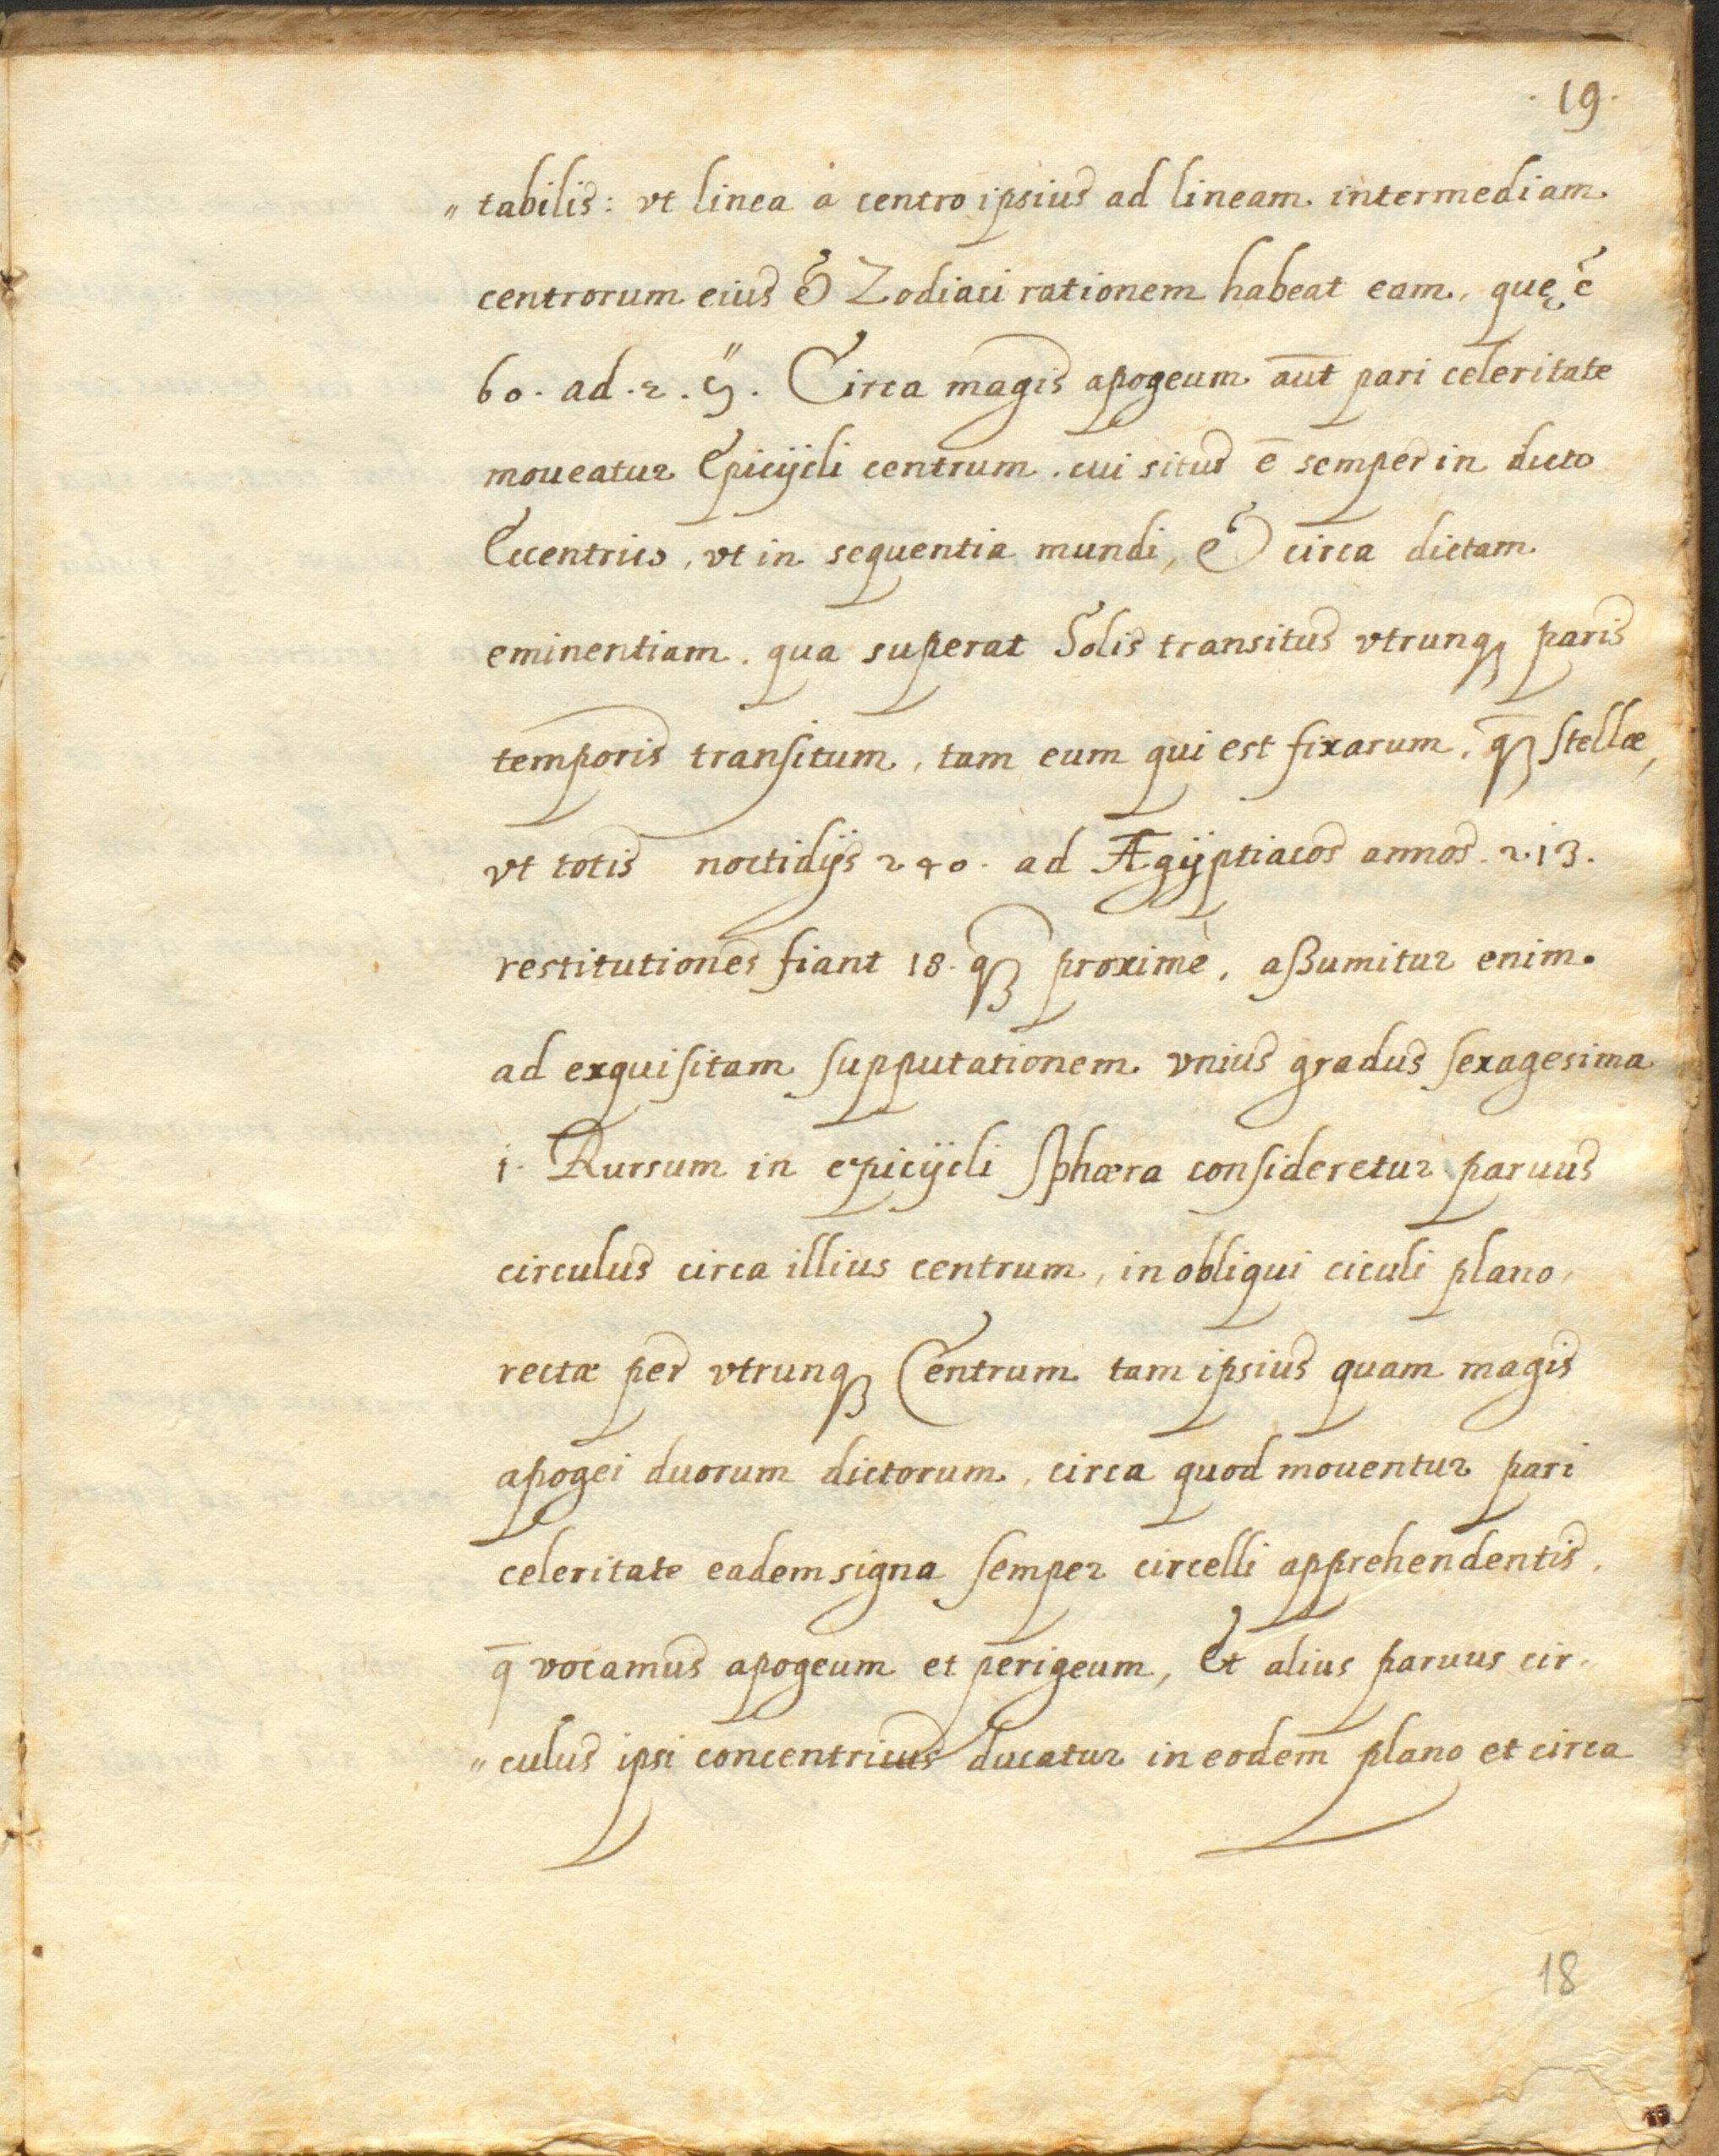 · 19 ·
„ tabilis: vt linea à centro ipsius ad lineam intermediam
centrorum eius & Zodiaci rationem habeat eam, quę ē
60. ad. 2. . Circa magis apogeum aūt pari celeritate
moueatur Epicÿcli centrum. cui situs ē semper in dicto
Eccentrico, vt in sequentia mundi, & circa dictam
eminentiam. qua superat Solis transitus vtrunqꝫ paris
temporis tranſitum, tam eum qui est fixarum, q̄ꝫ ſtellæ,
vt totis noctidijs 240. ad Ægÿptiacos annos. 213.
restitutiones fiant 18. qꝫ proximè, aßumitur enim.
ad exquiſitam ſupputationem vnius gradus ſexagesima
1. Rursum in epicÿcli ſphæra conſideretur paruus
circulus circa illius centrum, in obliqui ciculi plano,
rectæ per vtrunqꝫ Centrum tam ipsius quam magis
apogei duorum dictorum, circa quod mouentur pari
celeritate eadem signa ſemper circelli apprehendentis.
q̄ vocamus apogeum et perigeum, Et alius paruus cir„
„ culus ipsi concentricus ducatur in eodem plano et circa
18